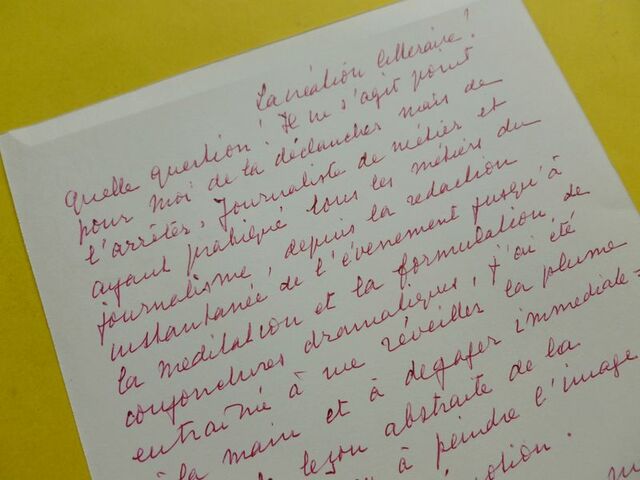 La création littéraire !
Quelle question ! Il ne s'agit point
pour moi de la déclancher mais de
l'arrêter. Journaliste de métier et
ayant pratiqué tous les métiers du
journalisme, depuis la rédaction
instantanée de l'évenement jusqu'à
la méditation et la formulation de
conjonctures dramatiques, j'ai été
entraîné à me réveiller la plume
à la main et à dégager immédiate=
leçon abstraite de la
à peindre l'image